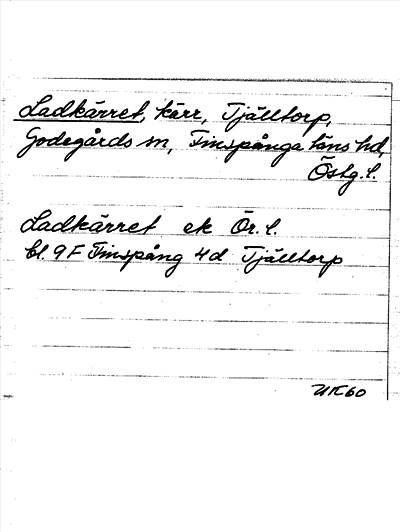 Ladkärret, kärr, Tjälltorp,
Godegårds sn, Finspånga läns hd,
Östg. l.
Ladkärret ek Ör. l.
bl. 9F Finspång 4d Tjälltorp
UK60